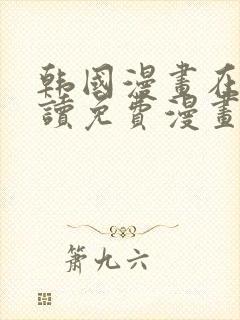 韩國漫畫在
讀免費漫畫
簫九六